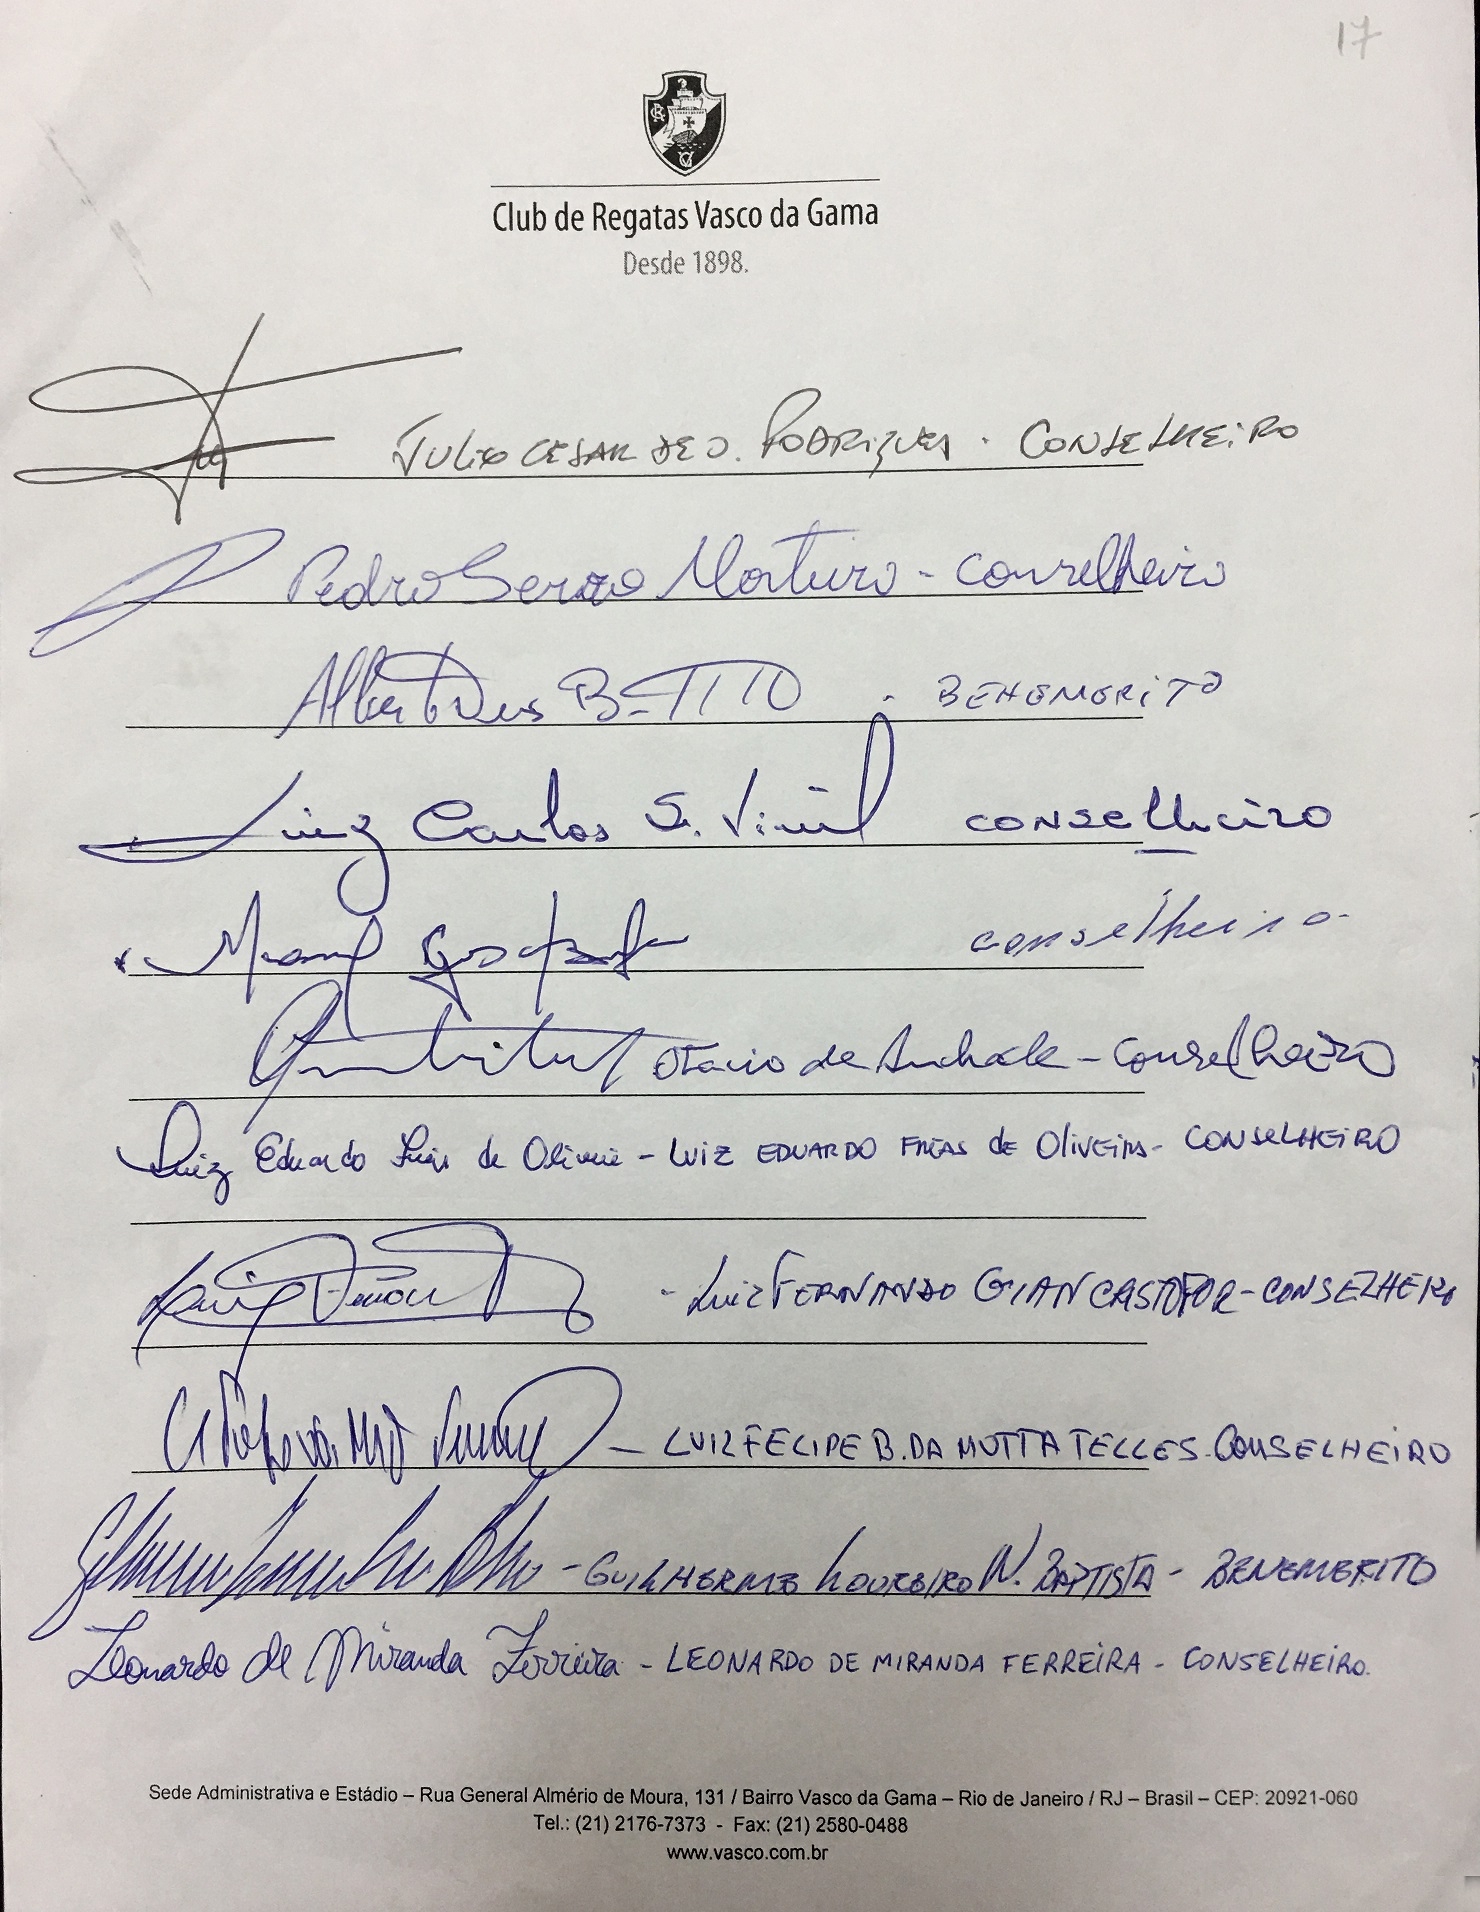 17
Club de Regatas Vasco da Gama
Desde 1898.
JULIO CESAR DE O. RODRIGUES - CONSELHEIRO
Pedro Serrão Monteiro - Conselheiro
B. TITO - BENEMERITO
Luiz Carlos S. conselheiro
conselheiro
Otavio de Andrade - Conselheiro
Luiz Eduardo Frias de Oliveira - LUIZ EDUARDO FRIAS de OLIVEIRA - CONSELHEIRO
- LUIZ FERNANDO GIANCASTOFOR - CONSELHEIRO
- LUIZ FELIPE B. DA MOTTA TELLES - CONSELHEIRO
- GUILHERME LOUREIRO N. BAPTISTA - BENEMERITO
Leonardo de Miranda Ferreira - LEONARDO DE MIRANDA FERREIRA - CONSELHEIRO.
Sede Administrativa e Estádio – Rua General Almério de Moura, 131 / Bairro Vasco da Gama – Rio de Janeiro / RJ – Brasil – CEP: 20921-060
Tel.: (21) 2176-7373 - Fax: (21) 2580-0488
www.vasco.com.br